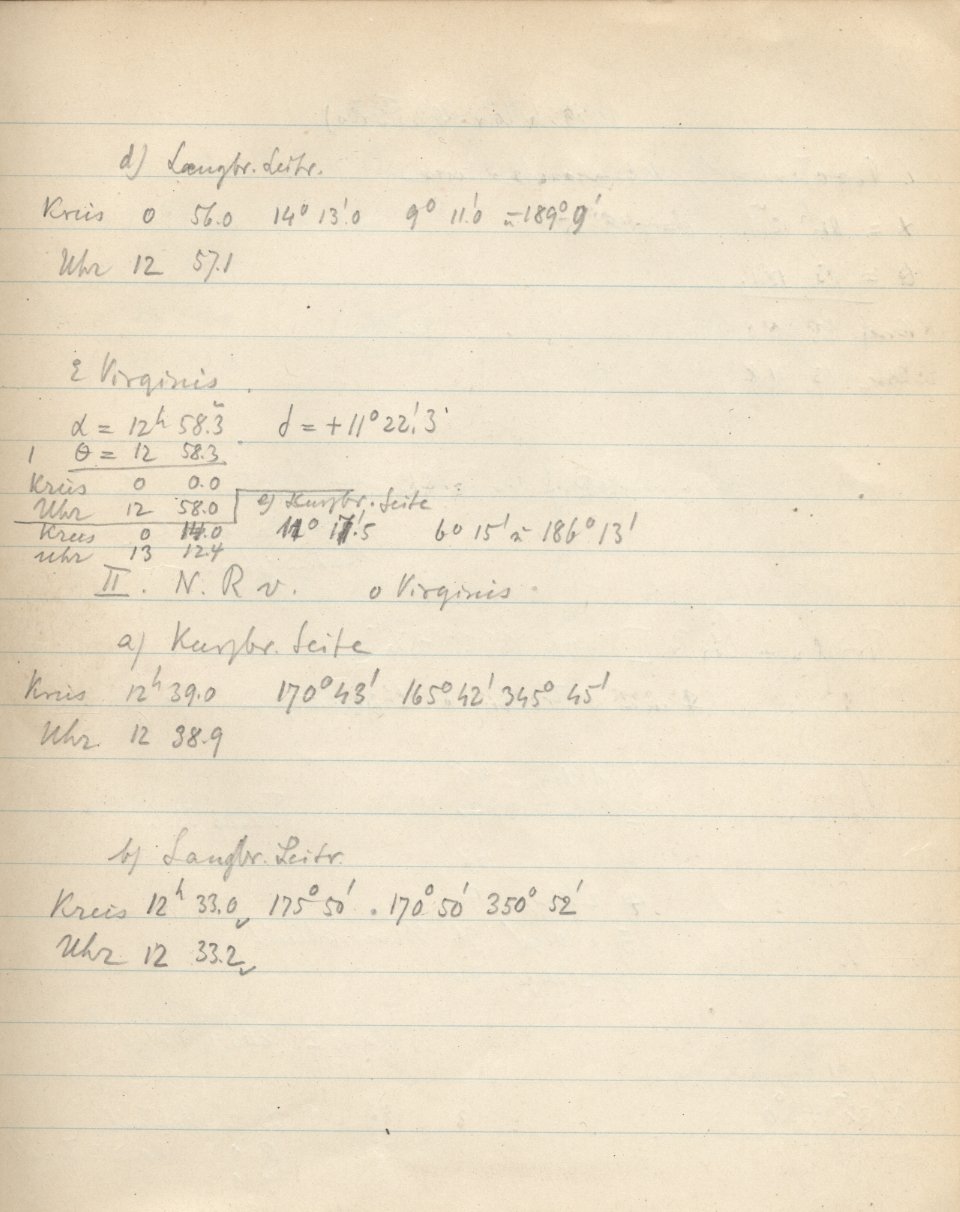 d) Langbr. Leitr.
Kreis 0 56.0 14° 13.'0 9° 11.'0 u 189° 9'
Uhr 12 57.1
ε Virginis
α = 12h 58.m3 δ = +11° 22.'3
1 θ = 12 58.3
Kreis 0 0.0
Uhr 12 58.0 e) Kurzbr. Seite
Kreis 0 14.0 11° 17.'5 6° 15' u 186° 13'
Uhr 13 12.4
II. N. R v. o Virginis
a) Kurzbr. Seite
Kreis 12h 39.0 170° 43' 165° 42' 345° 45'
Uhr 12 38.9
b) Langbr. Leitr.
Kreis 12h 33.0 175° 50' . 170° 50' 350° 52'
Uhr 12 33.2